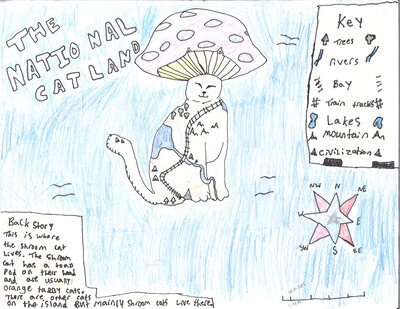 THE
NATIONAL
CAT LAND
Key
Trees
rivers
Bay
Train tracks
Lakes
mountain
civilization
N
NE
E
SE
S
SW
W
NW
Back Story
This is where
the shroom cat
Lives. The Shroom
cat has a toad
Pod on their head
and are usually
orange tabby cats.
There are other cats
on the island But mainly Shroom cats Love there.